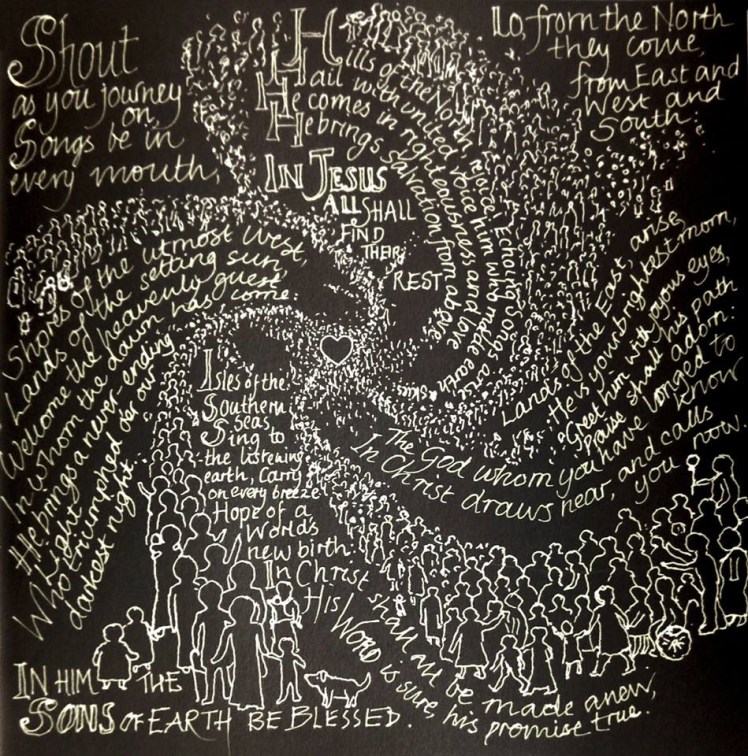 Shout
as you journey
on,
Songs be in
every mouth,
Lo, from the North
they come,
from East and
West and
South.
Hills of the North rejoice, Echoing songs arise
Hail with united voice him who made earth
He comes in righteousness and love
He brings salvation from above
IN JESUS
ALL SHALL
FIND
THEIR
REST
Lands of the East arise
He is your brightest morn,
Greet him with joyous eyes,
praise shall his path adorn:
The God whom you have longed to know
In Christ draws near, and calls you now.
Shores of the utmost West,
Lands of the setting sun,
Welcome the heavenly guest
in whom the dawn has come:
He brings a never ending
Light
Who triumphed o'er our
darkest night.
Isles of the
Southern
Seas,
Sing to
the listening
earth, Carry
on every breeze
Hope of a
World's
new birth:
In Christ shall all be made anew,
His WORD is sure, his promise true.
IN HIM THE
SONS OF EARTH BE BLESSED.